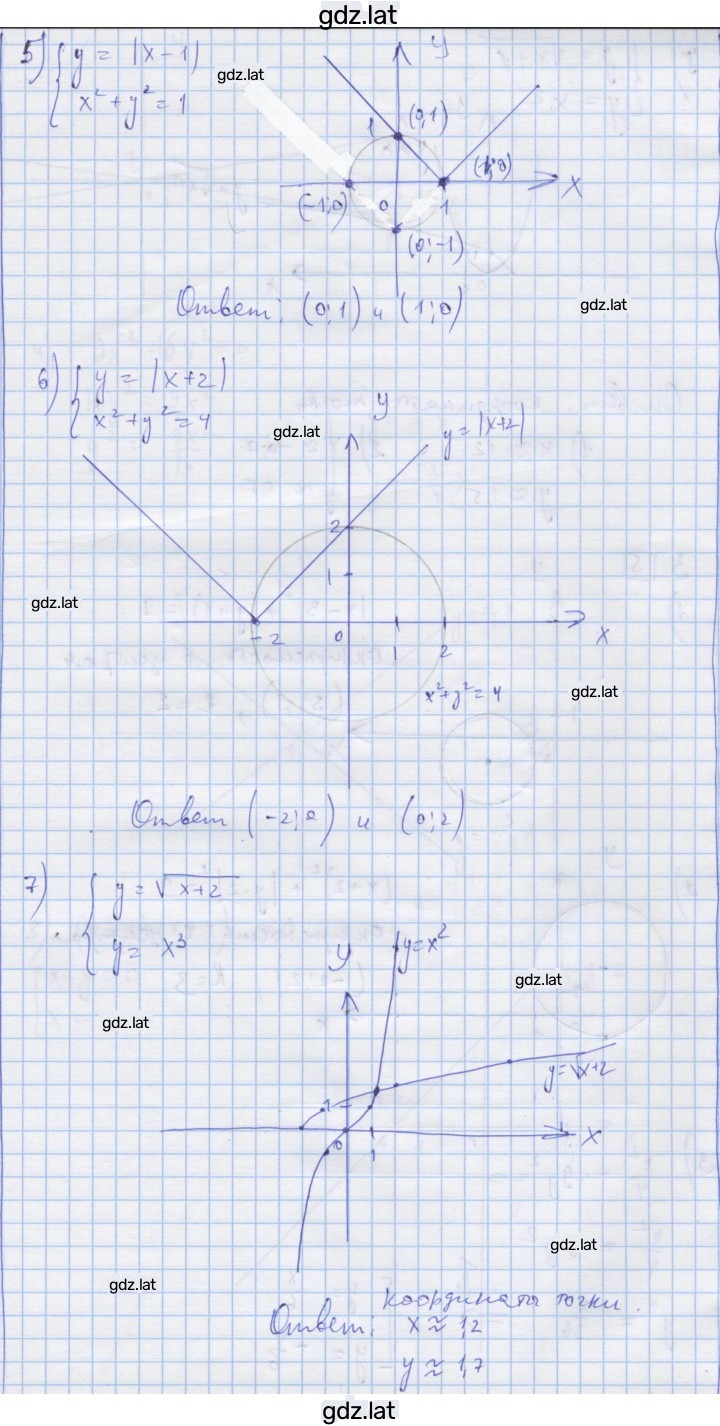 gdz.lat
5) { y = |x-1|
x² + y² = 1
gdz.lat
y
1
(0;1)
(1;0)
x
(-1;0)
0
1
(0;-1)
Ответ: (0;1) и (1;0)
gdz.lat
6) { y = |x+2|
x² + y² = 4
gdz.lat
y
y = |x+2|
2
1
gdz.lat
-2
0
1
2
x
x² + y² = 4
gdz.lat
Ответ (-2;0) и (0;2)
7) { y = √x+2
y = x³
y
y = x²
gdz.lat
gdz.lat
y = √x+2
1
0
1
x
gdz.lat
gdz.lat
координаты точки.
Ответ: x ≈ 1,2
y ≈ 1,7
gdz.lat